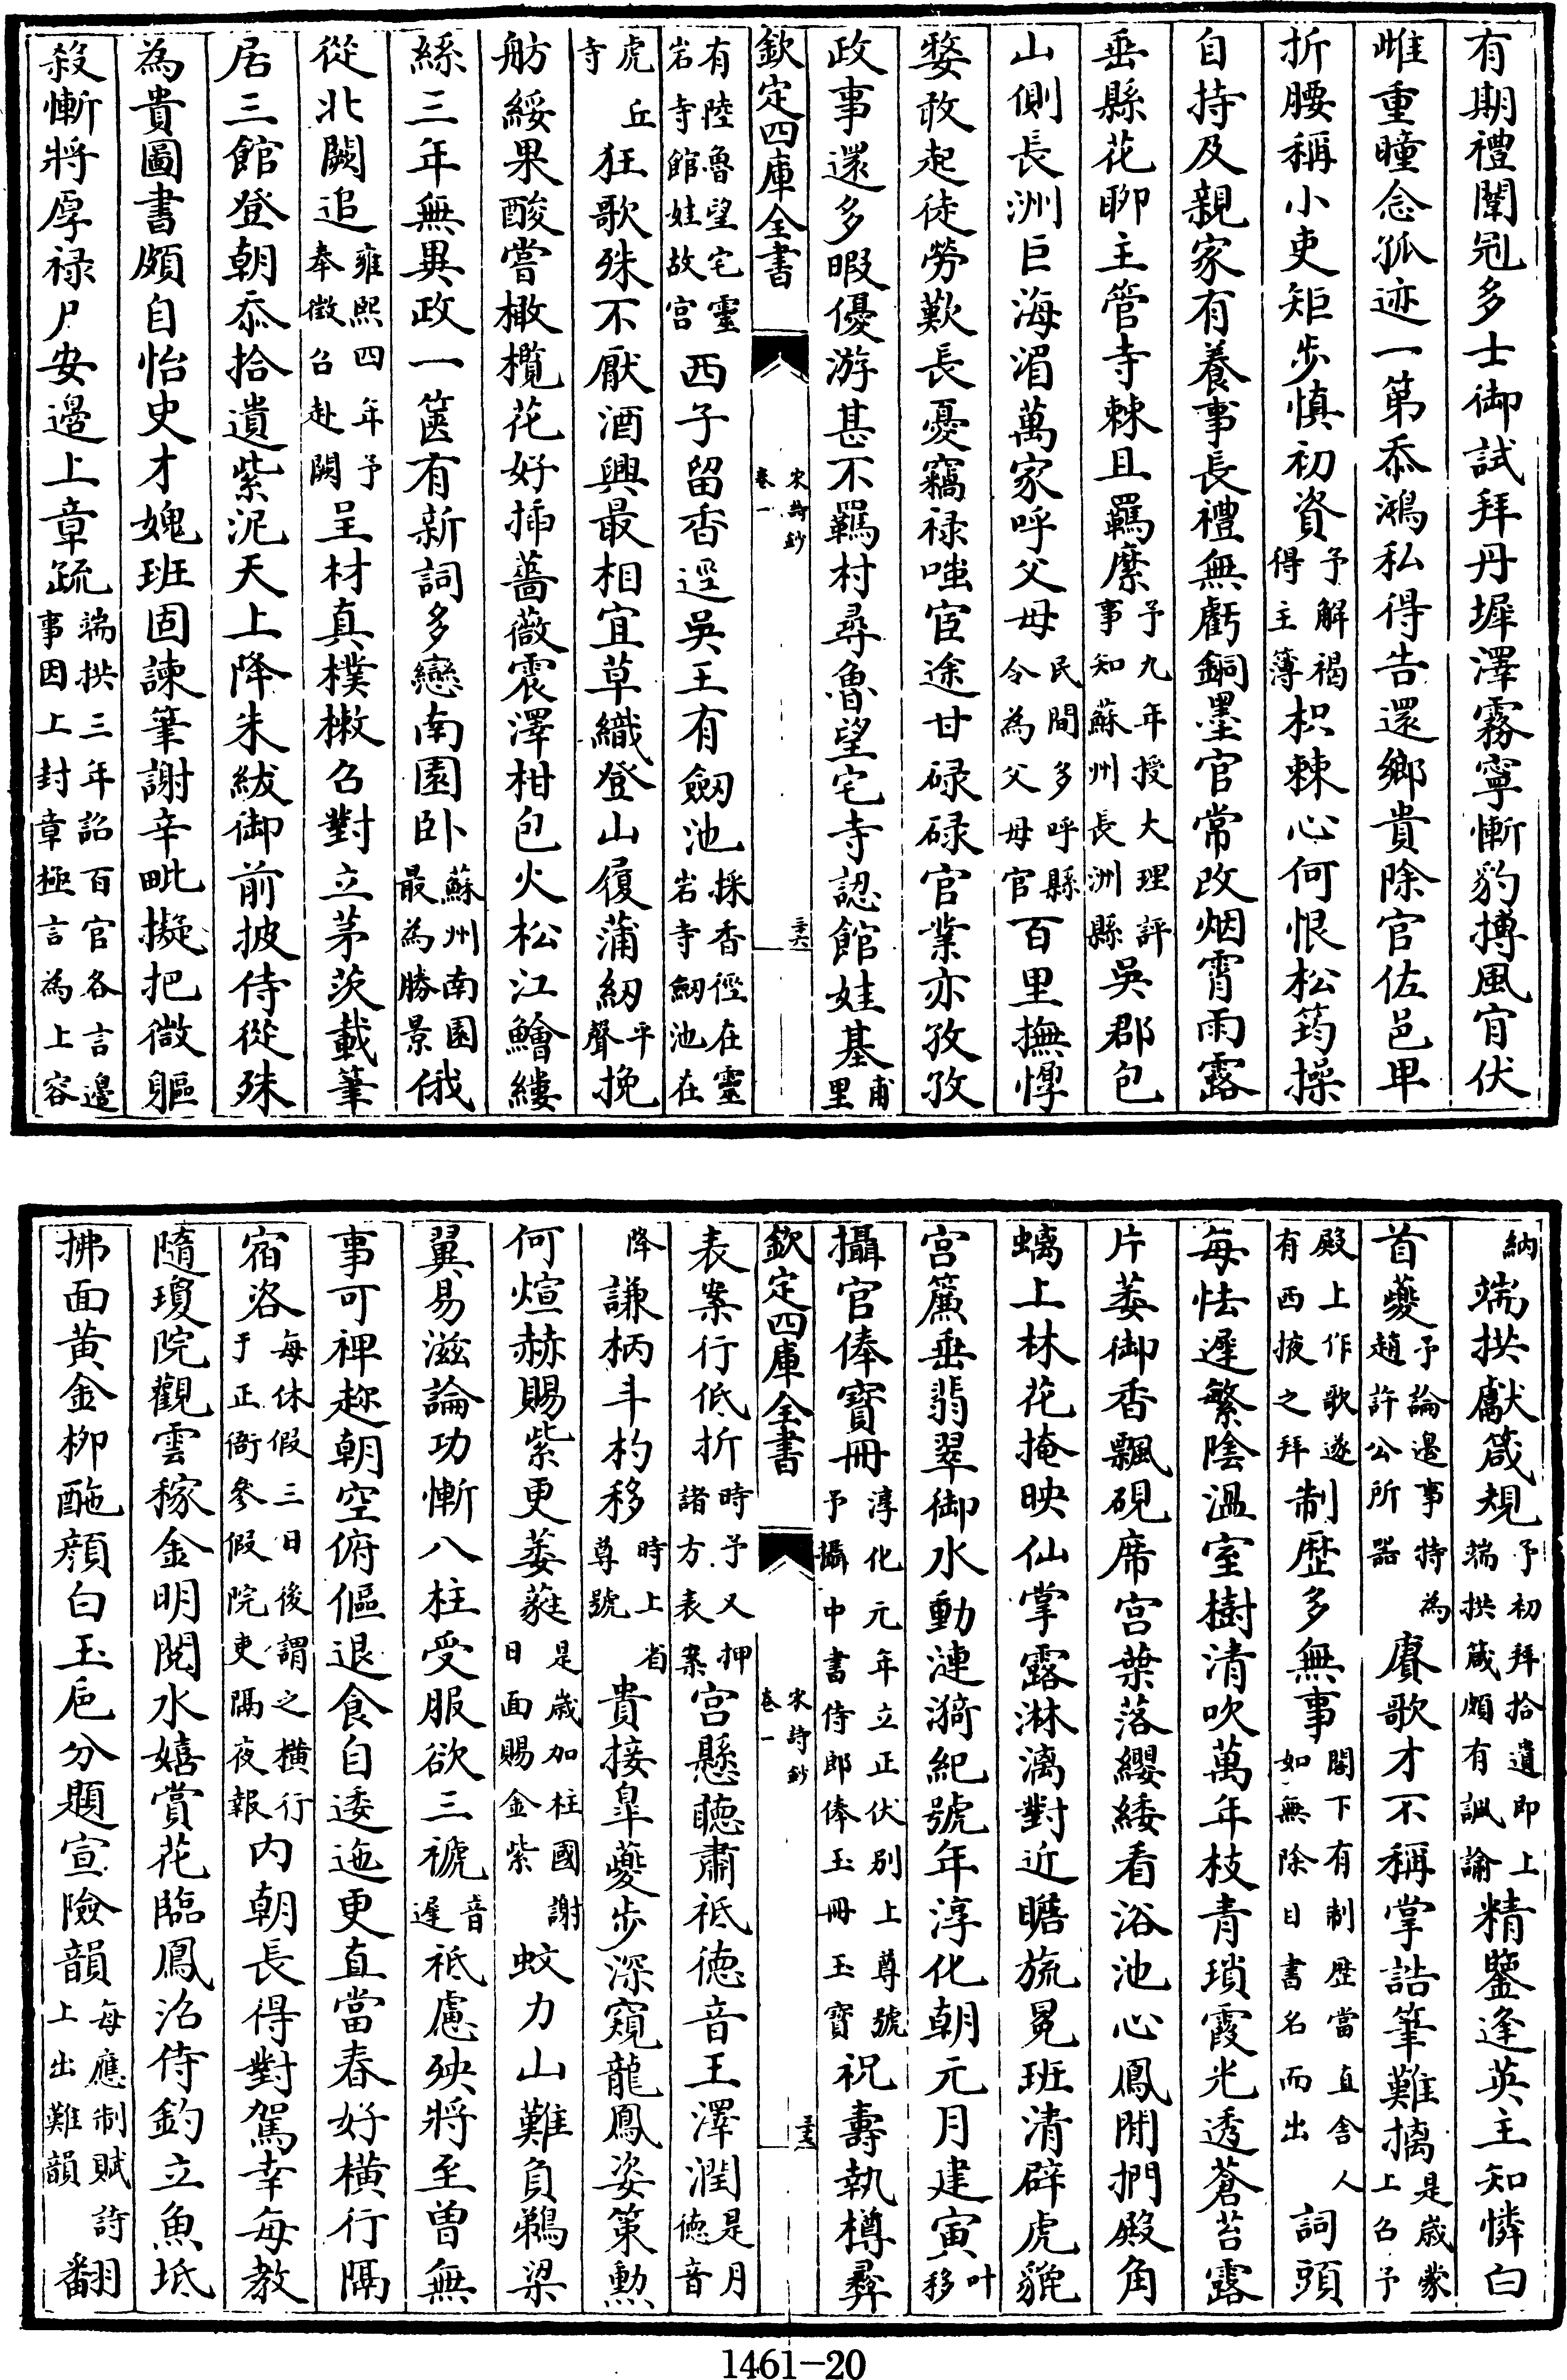 有期禮闈剋多士御試拜丹墀澤霧寧慚豹摶風肎伏
雌重瞳念孤迹一第忝鴻私得告還鄉貴除官佐邑卑
折腰稱小吏矩步慎初資予解褐得主簿枳棘心何恨松筠操
自持及親家有養事長禮無虧銅墨官常改烟霄雨露
垂縣花聊主管寺棘且羈縻予九年授大理評事知蘇州長洲縣吳郡包
山側長洲巨海湄萬家呼父母民間多呼縣令為父母官百里撫惸
嫠敢起徒勞歎長憂竊禄嗤宦途甘碌碌官業亦孜孜
政事還多暇優游甚不羈村尋魯望宅寺認館娃基甫里
欽定四庫全書 宋詩鈔 卷一 三六
有陸魯望宅靈岩寺館娃故宫西子留香逕吳王有劔池採香徑在靈岩寺劔池在
虎丘寺狂歌殊不厭酒興最相宜草織登山履蒲紉平聲挽
舫綏果酸嘗橄欖花好插薔薇震澤柑包火松江鱠縷
絲三年無異政一篋有新詞多戀南園卧蘇州南園最為勝景俄
從北闕追雍熙四年予奉徵召赴闕呈材真樸樕召對立茅茨載筆
居三館登朝忝拾遺紫泥天上降朱紱御前披侍從殊
為貴圖書頗自怡史才媿班固諫筆謝辛毗擬把微軀
殺慚將厚禄尸安邊上章疏端拱三年詔百官各言邊事因上封章極言為上容
納端拱獻箴規予初拜拾遺即上端拱箴頗有諷諭精鑒逢英主知憐白
首夔予論邊事特為趙許公所器賡歌才不稱掌誥筆難摛是歳蒙上召予
殿上作歌遂有西掖之拜制歴多無事閣下有制歴當直舍人如無除目書名而出詞頭
每怯遲繁陰溫室樹清吹萬年枝青瑣霞光透蒼苔露
片萎御香飄硯席宫葉落纓緌看浴池心鳳閒捫殿角
螭上林花掩映仙掌露淋漓對近瞻旒冕班清辟虎貔
宫簾垂翡翠御水動漣漪紀號年淳化朝元月建寅叶移
攝官俸寶冊淳化元年立正伏別上尊號予攝中書侍郎俸玉冊玉寳祝壽執樽彝
欽定四庫全書 宋詩鈔 卷一
表案行低折時予又押諸方表案宫懸聴肅祇徳音王澤潤是月徳音
降謙柄斗杓移時上省尊號貴接皐夔步深窺龍鳳姿策勲
何煊赫賜紫更萎蕤是歳加柱國謝日面賜金紫蚊力山難負鵜梁
翼易滋論功慚八柱受服欲三褫音遲祗慮殃將至曽無
事可裨趂朝空俯傴退食自逶迤更直當春好橫行隔
宿洛每休假三日後謂之橫行于正衙參假院吏隔夜報内朝長得對駕幸每教
隨瓊院觀雲稼金明閱水嬉賞花臨鳳沼侍釣立魚坻
拂面黃金柳酡顔白玉巵分題宣險韻每應制賦詩上出難韻翻
1461-20